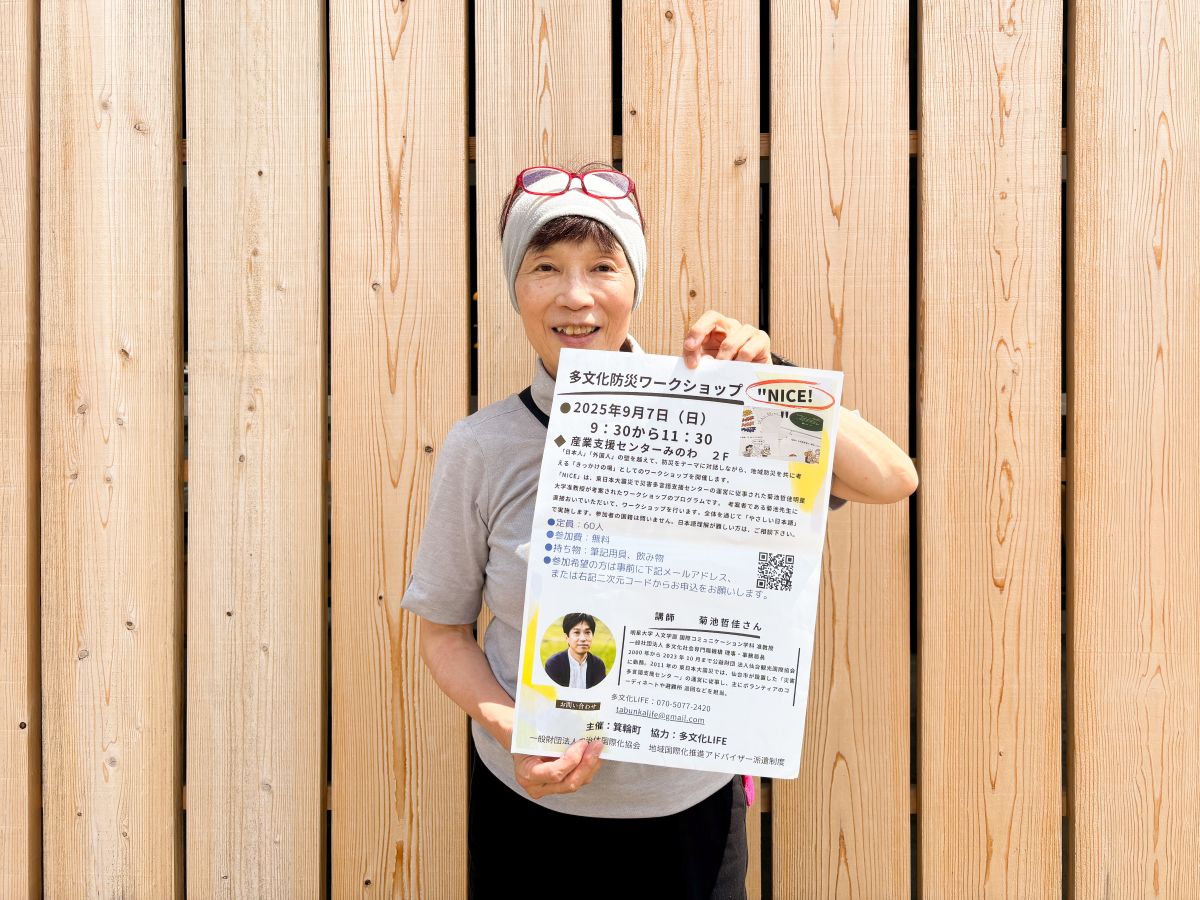 多文化防災ワークショップ
"NICE!
"
●2025年9月7日（日）
9：30から11：30
◆ 産業支援センターみのわ 2F
「日本人」「外国人」の壁を越えて、防災をテーマに対話しながら、地域防災を共に考
える「きっかけの場」としてのワークショップを開催します。
「NICE」は、東日本大震災で災害多言語支援センターの運営に従事された菊池哲佳明星
大学准教授が考案されたワークショップのプログラムです。 考案者である菊池先生に
直接おいでいただいて、ワークショップを行います。全体を通じて「やさしい日本語」
で実施します。参加者の国籍は問いません。日本語理解が難しい方は、ご相談下さい。
●定員：60人
●参加費：無料
●持ち物：筆記用具、飲み物
●参加希望の方は事前に下記メールアドレス、
または右記二次元コードからお申込をお願いします。
講師 菊池哲佳さん
明星大学 人文学部 国際コミュニケーション学科 准教授
一般社団法人 多文化社会専門職機構 理事・事務局長
2000 年から 2023 年 10 月まで公益財団 法人仙台観光国際協会
に勤務。2011 年の 東日本大震災では、仙台市が設置した「災害
多言語支援センタ ー」の運営に従事し、主にボランティアのコ
ーディネートや避難所 巡回などを担当。
お問い合わせ
多文化LIFE：070-5077-2420
tabunkalife@gmail.com
主催：箕輪町 協力：多文化LIFE
一般財団法人 治体国際化協会 地域国際化推進アドバイザー派遣制度